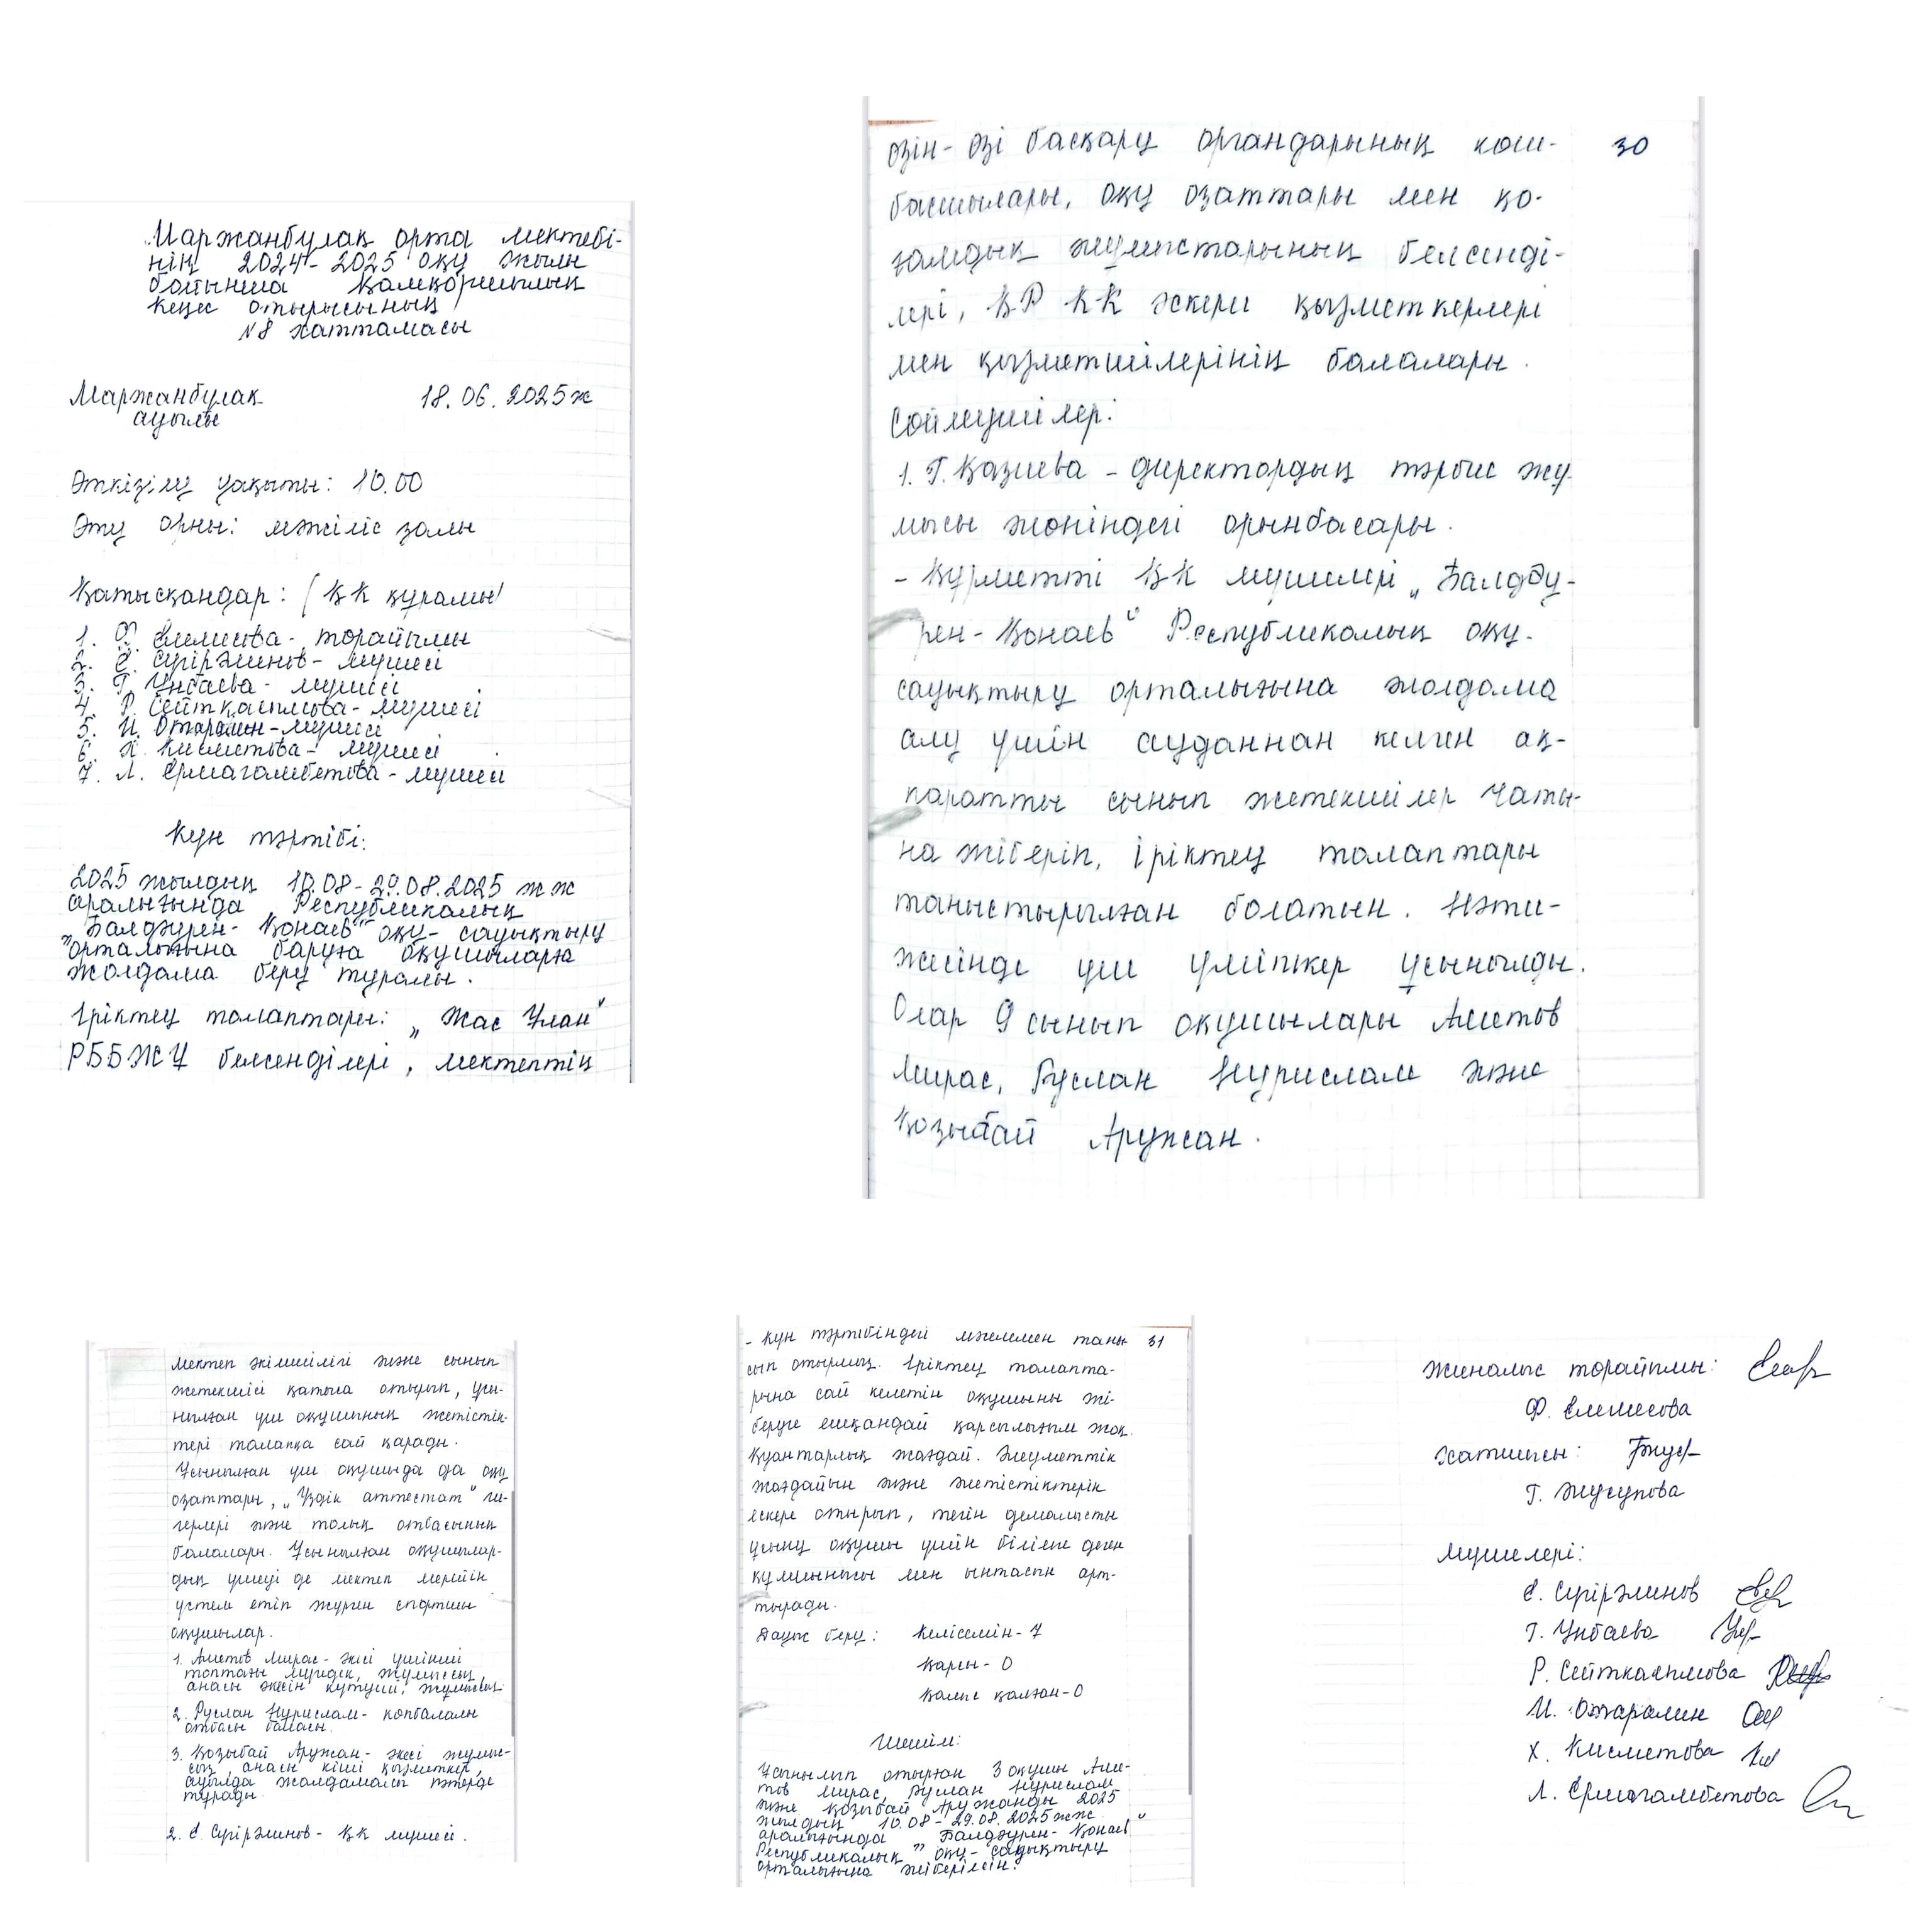 Маржанбұлақ орта мектебі-
нің 2024-2025 оқу жылы
бойынша Қамқоршылық
кеңес отырысының
№8 хаттамасы
Маржанбұлақ 18.06.2025ж
ауылы
Өткізілу уақыты: 10.00
Өту орны: мәжіліс залы
Қатысқандар: (ҚК құрамы)
1. Ф. Елемесова - төрайымы
2. Е. Сүгірәлинов - мүшесі
3. Г. Унбаева - мүшесі
4. Р. Сейтқасымова - мүшесі
5. И. Отаралин - мүшесі
6. Х. Кисметова - мүшесі
7. Л. Ермагамбетова - мүшесі
Күн тәртібі:
2025 жылдың 10.08-29.08.2025 жж
аралығында Республикалық
"Балдәурен-Қонаев" оқу-сауықтыру
орталығына баруға оқушыларға
жолдама беру туралы.
Іріктеу талаптары: "Жас Ұлан"
РББЖҰ белсенділері, мектептің
өзін-өзі басқару органдарының көш- 30
басшылары, оқу озаттары мен қо-
ғамдық жұмыстарының белсенді-
лері, ҚР ҚК әскери қызметкерлері
мен қызметшілерінің балалары.
Сөйлеушілер:
1. Г. Казиева - директордың тәрбие жұ-
мысы жөніндегі орынбасары.
- Құрметті ҚК мүшелері "Балдәу-
рен-Қонаев" Республикалық оқу-
сауықтыру орталығына жолдама
алу үшін ауданнан келген ақ-
паратты сынып жетекшілер чаты-
на жіберіп, іріктеу талаптары
таныстырылған болатын. Нәти-
жесінде үш үміткер ұсынылды.
Олар 9 сынып оқушылары Аметов
Мирас, Руслан Нурислам және
Қозыбай Аружан.
Мектеп әкімшілігі және сынып
жетекшісі қатыса отырып, ұсы-
нылған үш оқушының жетістік-
тері талапқа сай қарады.
Ұсынылған үш оқушыда да оқу
озаттары, "Үздік аттестат" ие-
герлері және толық отбасының
балалары. Ұсынылған оқушылар-
дың үшеуі де мектеп мерейін
үстем етіп жүрген спортшы
оқушылар.
1. Аметов Мирас - әкесі үшінші
топтағы мүгедек, жұмыссыз,
анасы әкесін күтуші, жұмыссыз
2. Руслан Нурислам - көпбалалы
отбасы баласы.
3. Қозыбай Аружан - әкесі жұмыс-
сыз, анасы кіші қызметкер,
ауылда жалдамалы пәтерде
тұрады.
2. Е. Сүгірәлинов - ҚК мүшесі.
- Күн тәртібіндегі мәселемен таны- 31
сып отырмыз. Іріктеу талапта-
рына сай келетін оқушыны жі-
беруге ешқандай қарсылығым жоқ.
Қуантарлық жағдай. Әлеуметтік
жағдайын және жетістіктерін
ескере отырып, тегін демалысты
ұсыну оқушы үшін білімге деген
құлшынысы мен ынтасын арт-
тырады.
Дауыс беру: Келісемін-7
Қарсы-0
Қалыс қалған-0
Шешім:
Ұсынылып отырған 3 оқушы Аме-
тов Мирас, Руслан Нурислам
және Қозыбай Аружанды 2025
жылдың 10.08-29.08.2025жж
аралығында "Балдәурен-Қонаев"
Республикалық оқу-сауықтыру
орталығына жіберілсін.
Жиналыс төрайымы:
Ф. Елемесова
Хатшысы:
Г. Жусупова
Мүшелері:
Е. Сүгірәлинов
Г. Унбаева
Р. Сейткасымова
И. Отаралин
Х. Кисметова
Л. Ермагамбетова